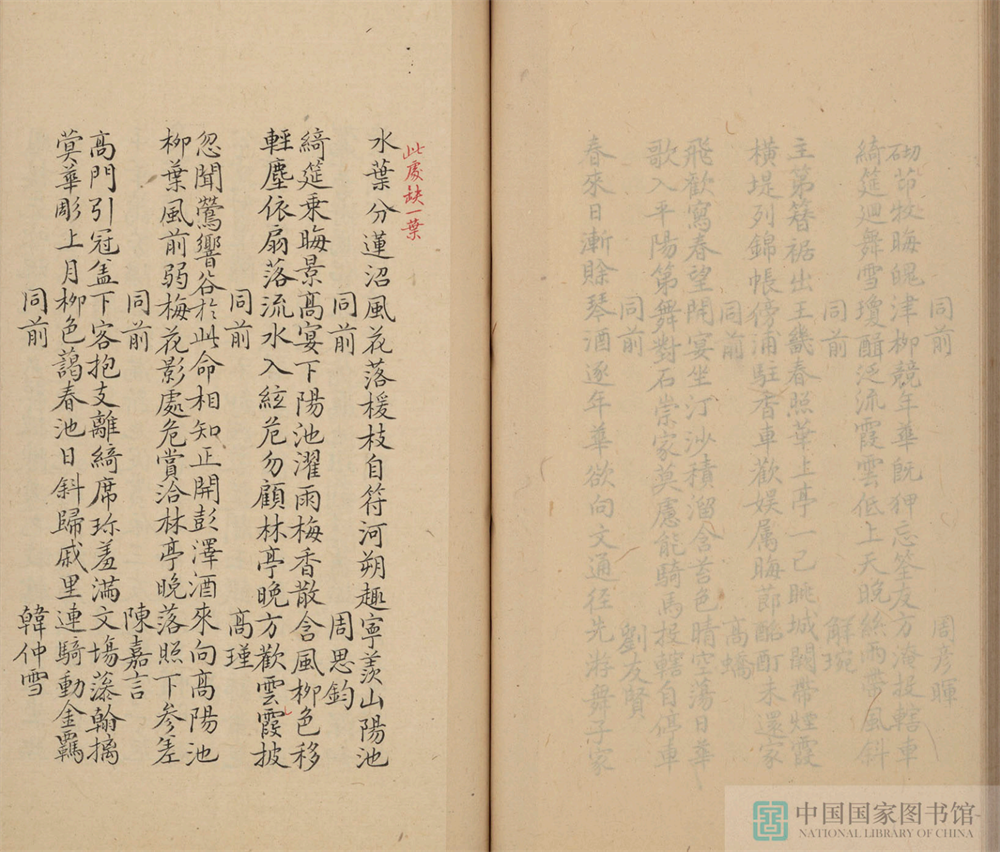 同前 周彦暉
砌茆牧晦魄津柳競年華既狎忘筌友方淹投轄車
綺筵廻舞雪瓊醑泛流霞雲低上天晚絲雨帶風斜
同前 解琬
主第簪裾出王畿春照華上亭一已眺城闕帶煙霞
橫堤列錦帳傍浦駐香車歡娛属晦莭酩酊未還家
同前 高嶠
飛歡寫春望開宴坐汀沙積溜含苔色晴空蕩日華
歌入平陽第舞對石崇家莫慮能騎馬投轄自停車
同前 劉友賢
春來日漸賒琴酒逐年華欲向文通徑先游舞子家
此處缺一葉
水葉分蓮沼風花落楥枝自符河朔趣寧羡山陽池
同前 周思鈞
綺筵乘晦景高宴下陽池濯雨梅香散含風柳色移
輕塵依扇落流水入絃危勿顧林亭晚方歡雲霞披
同前 高瑾
忽聞鶯響谷於此命相知正開彭澤酒來向高陽池
柳葉風前弱梅花影處危賞洽林亭晚落照下參差
同前 陳嘉言
高門引冠盖下客抱支離綺席珎羞滿文塲藻翰摛
蓂華彫上月柳色藹春池日斜歸戚里連騎動金羈
同前 韓仲雪
中国国家图书馆
NATIONAL LIBRARY OF CHINA